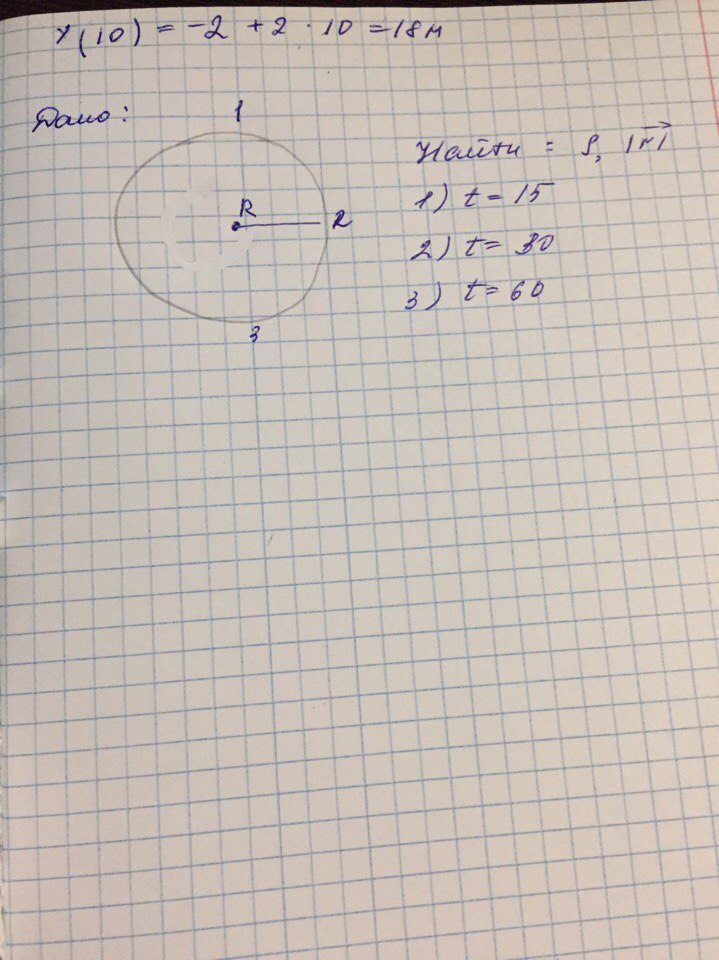 x(10) = -2 + 2 · 10 = 18м
Дано:
1
R
2
3
Найти = S, |r|
1) t = 15
2) t = 30
3) t = 60